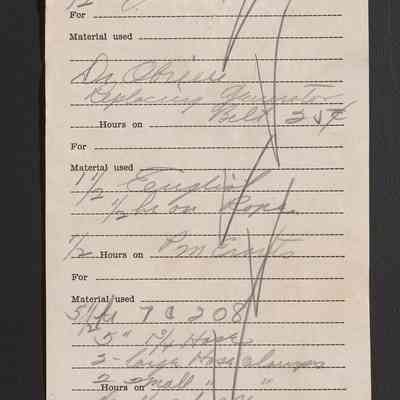 1/2
For
Material used
Dr. Obriens
Replacing Generator
Belt 25¢
Hours on
For
Material used
1 1/2 English
1/2 hr on Rope
1/2 Hours on P M
For
Material used
7 C 208
5" Hose
2 - large Hose clamps
2 small " "
Hours on